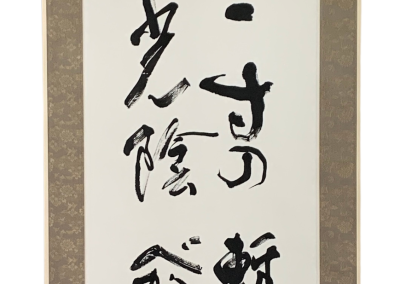 一寸の
光陰